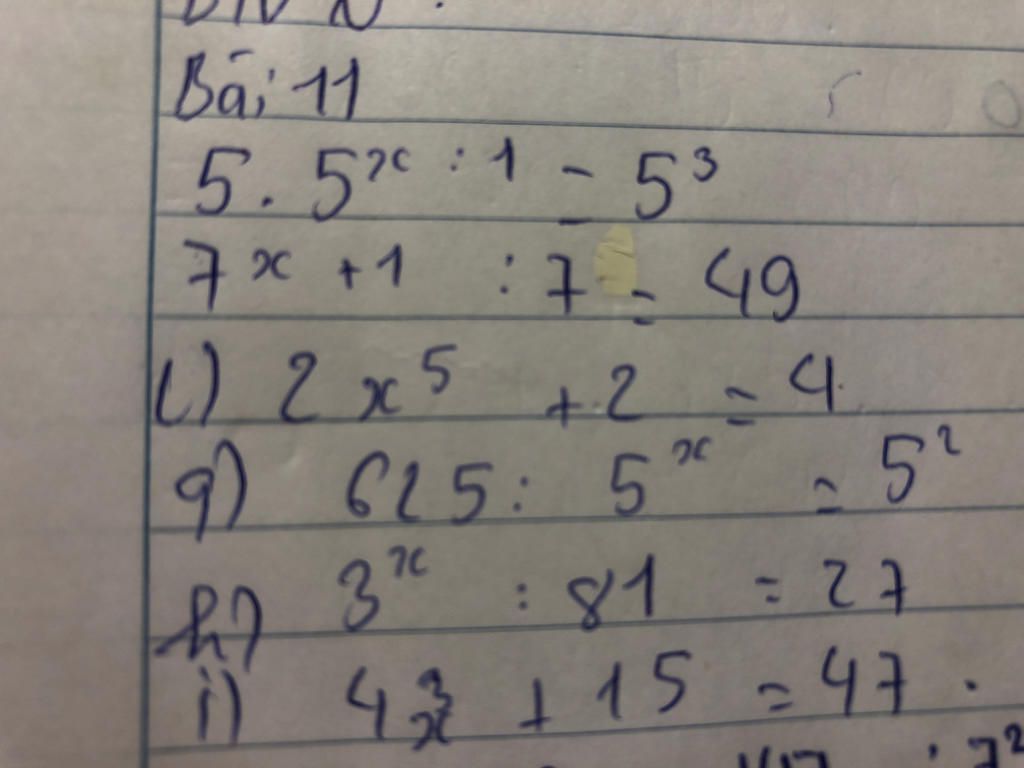 Bài 11
5 . 5^x : 1 = 5³
7^x + 1 : 7 = 49
l) 2x⁵ + 2 = 4.
g) 625 : 5^x = 5²
h) 3^x : 81 = 27
i) 4x³ + 15 = 47.
: 7²